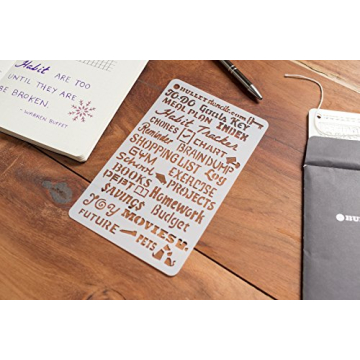 Habit ARE TOO
UNTIL THEY ARE
BE BROKEN.
- WARREN BUFFET
BULLETstencile.com
TO-DO GOALS KEY
MEAL PLAN INDEX
Habit Tracker
CHORES CHART
Reminder BRAINDUMP
SHOPPING LIST Log
GYM EXERCISE
School PROJECTS
BOOKS Homework
DEBT
$AVING$ Budget
JOY MOVIES
FUTURE PETS